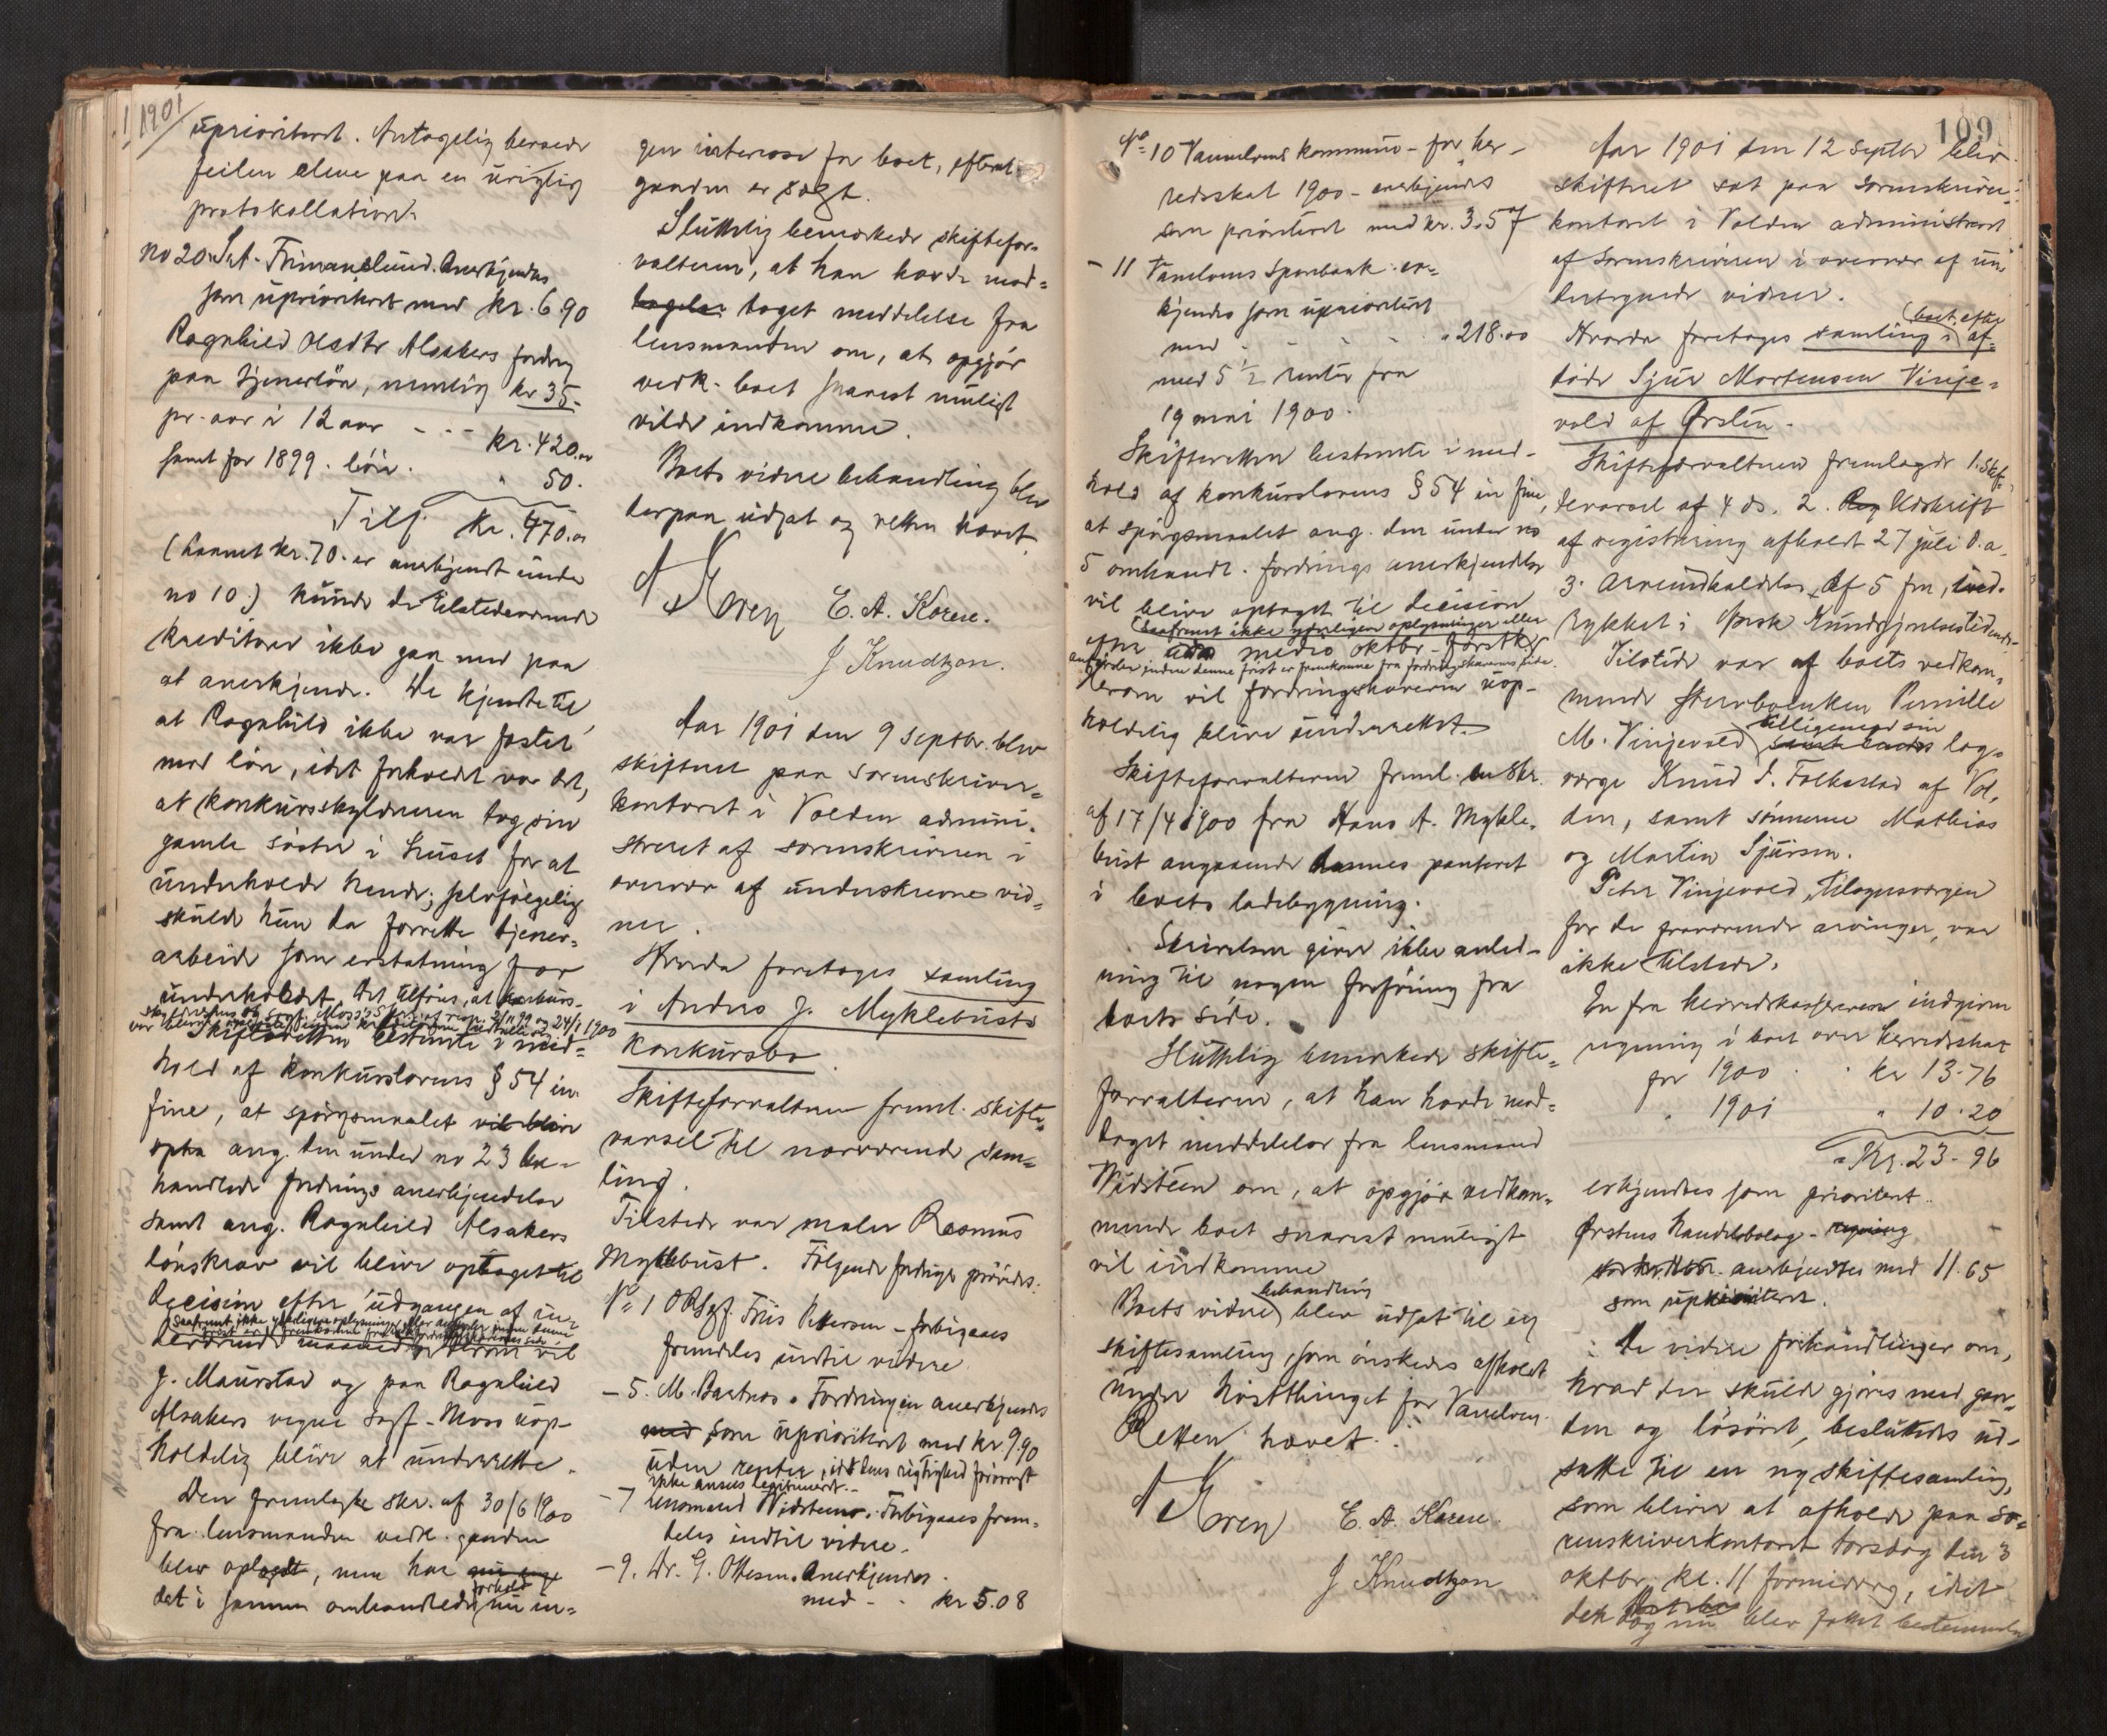 1901
uprioritert. Antagelig beroede
feilen alene paa en urigtig
protokollation.
No 20. Frimanslund. Anerkjendes
som uprioritert med kr. 6.90
Ragnhild Olsdtr Alsakers fordring
paa tjenerløn, nemlig kr 35.
pr. aar i 12 aar - - - kr. 420.00
samt for 1899. løn. " 50.
Tils. kr. 470.00
(hvoraf kr. 70. er anerkjendt under
no 10.) kunde de tilstedeværende
kreditorer ikke gaa med paa
at anerkjende. De kjendte til,
at Ragnhild ikke var fæstet
mod løn, idet forholdet var det,
at konkursskyldneren tog sin
gamle søster i huset for at
underholde hende; selvfølgelig
skulde hun da forrette tjener-
arbeide som erstatning for
underholdet. Det tilføies, at konkurs-
24/1 1900
Skifteretten bestemte i med-
hold af konkurslovens § 54 in
fine, at spørgsmaalet vil blive
opta ang. den under no 23 be-
handlede fordrings anerkjendelse
samt ang. Ragnhild Alsakers
lønskrav vil blive optaget til
decision efter udgangen af in-
saafremt ikke yderligere oplysninger eller anførsler inden denne
frist er fremkomne fra fordringshavernes side
deværende maaned herom vil
J. Maurstad og paa Ragnhild
Alsakers vegne sagf. Moss uop-
holdelig blive at underrette.
Den fremlagte skr. af 30/6 1900
fra lensmanden vedk. gaarden
blev oplæst, men har nu inge
det i samme omhandlede forhold nu in-
gen interesse for boet, efterat
gaarden er solgt.
Sluttelig bemærkede skiftefor-
valteren, at han havde mod-
tagelse taget meddelelse fra
lensmanden om, at opgjør
vedk. boet snarest muligt
vilde indkomme.
Boets videre behandling blev
derpaa udsat og retten hævet.
E. A. Koren.
J Knudtzon.
Aar 1901 den 9 septbr. blev
skifteret paa sorenskriver-
kontoret i Volden admini-
streret af sorenskriveren i
overvær af underskrevne vid-
ner.
Hvorda foretoges samling
i Anders J. Myklebusts
konkursbo.
Skifteforvalteren freml. skifte-
varsel til nærværende sam-
ling.
Tilstede var maler Rasmus
Myklebust. Følgende fordringer prøvedes.
No 1 ORSgf. Friis Petersen - forbigaaes
fremdeles indtil videre.
- 5. M. Baatnes. Fordringen anerkjendes
med som uprioritert med kr. 9.90
uden renter, idet dens rigtighed forøvrigt
ikke ansees legitimeret. -
- 7 lensmand Vidsteen. Forbigaaes frem-
deles indtil videre.
- 9. Dr. G. Ottesen. Anerkjendes.
med - . kr 5.08
109
No 10 Vannelvens kommune - for her-
redsskat 1900 - anerkjendes
som prioritert med kr. 3.57
- 11 Vanelvens Sparebank er-
kjendes som uprioritert
med - - - - " 218.00
med 5 1/2 renter fra
19 mai 1900.
Skifteretten bestemte i med-
hold af konkurslovens § 54 in fine,
at spørgsmaalet ang. den under no
5 omhandl. fordrings anerkjendelse
vil blive optaget til decision
saafremt ikke yderligere oplysninger eller
efter medio oktbr. førstk.
anførsler inden denne frist er fremkomne fra fordringshaverens side.
Herom vil fordringshaveren uop-
holdelig blive underrettet.
Skifteforvalteren freml. en skr.
af 17/4 1900 fra Hans A. Mykle-
bust angaaende hannes panteret
i boets ladebygning.
Skrivelsen giver ikke anled-
ning til nogen forføining fra
boets side.
Sluttelig bemærkede skifte-
forvalteren, at han havde mod-
taget meddelelse fra lensmand
Vidsteen om, at opgjør vedkom-
mende boet snarest muligt
vil indkomme
Boets videre behandling blev udsat til en
skiftesamling, som ønskedes afholdt
under høstthinget for Vanelven.
Retten hævet.
E. A. Koren.
J Knudtzon
Aar 1901 den 12 septbr blev
skifteret sat paa sorenskriver-
kontoret i Volden administreret
af sorenskriveren i overvær af un-
dertegnede vidner.
Hvorda foretoges samling i boet efter af-
døde Sjur Mortensen Vinje-
vold af Ørsten.
Skifteforvalteren fremlagde 1. Skif-
tevarsel af 4 ds. 2. Reg Udskrift
af registrering afholdt 27 juli d. a.
3. arveindkaldelse af 5 fm, ind-
rykket i Norsk Kundgjørelsestidende.
Tilstede var af boets vedkom-
mende sterboenken Pernille
M. Vinjevold tilligemed sin samt hendes lag-
verge Knud S. Folkestad af Vol-
den, samt sønnerne Mathias
og Martin Sjursen.
Peter Vinjevold, tilsynsvergen
for de fraværende arvinger, var
ikke tilstede.
En fra herredskassereren indgiven
regning i boet over herredsskat
for 1900 . . kr 13.76
" 1901 " 10.20
Kr. 23.96
erkjendtes som prioritert.
Ørstens Handelsbolag - regning
anerkjendtes med 11.65
som uprioritert.
De videre forhandlinger om,
hvad der skulde gjøres med gaar-
den og løsøret, besluttedes ud-
satte til en ny skiftesamling,
som bliver at afholde paa so-
renskriverkontoret torsdag den 3
oktbr. kl. 11 formiddag, idet
det dog nu blev fattet bestemmelse